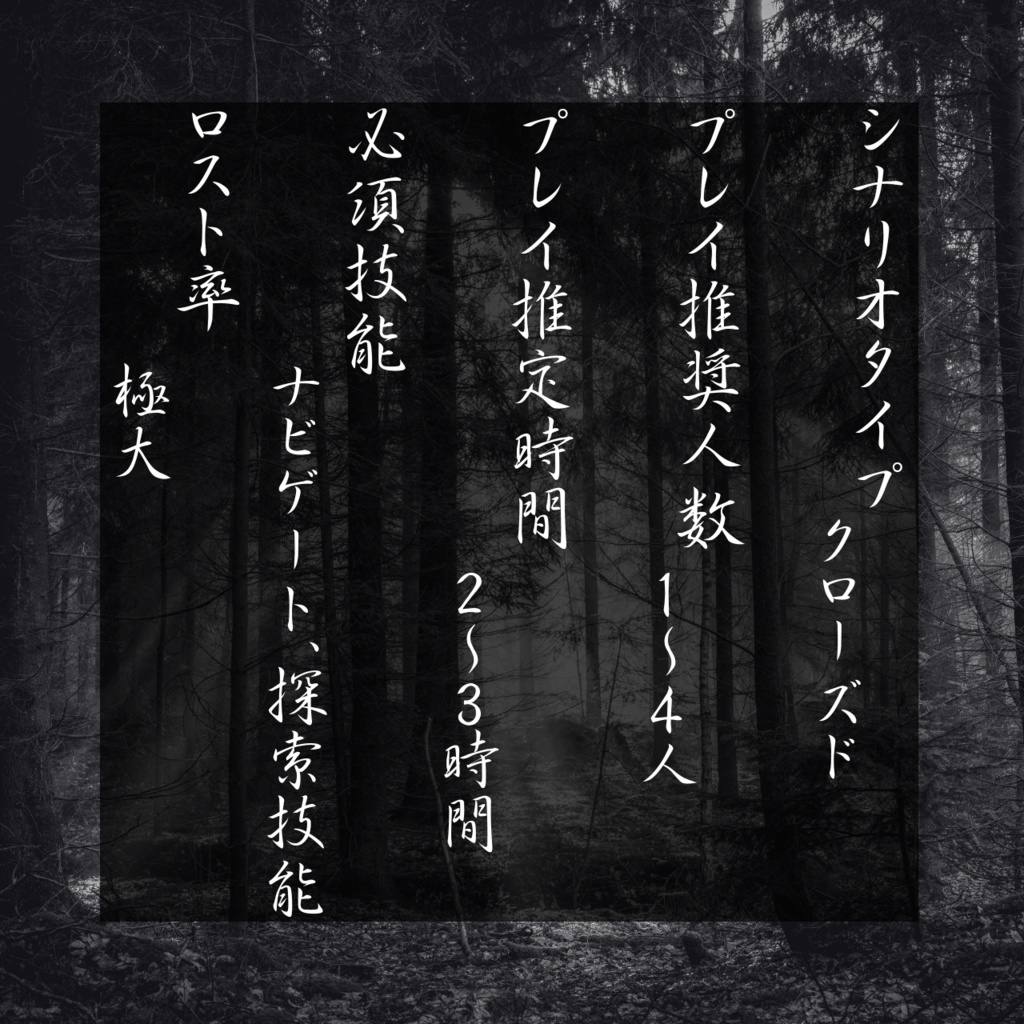 シナリオタイプ
クローズド
プレイ推奨人数
1～4人
プレイ推定時間
2～3時間
必須技能
ナビゲート、探索技能
ロスト率
極大